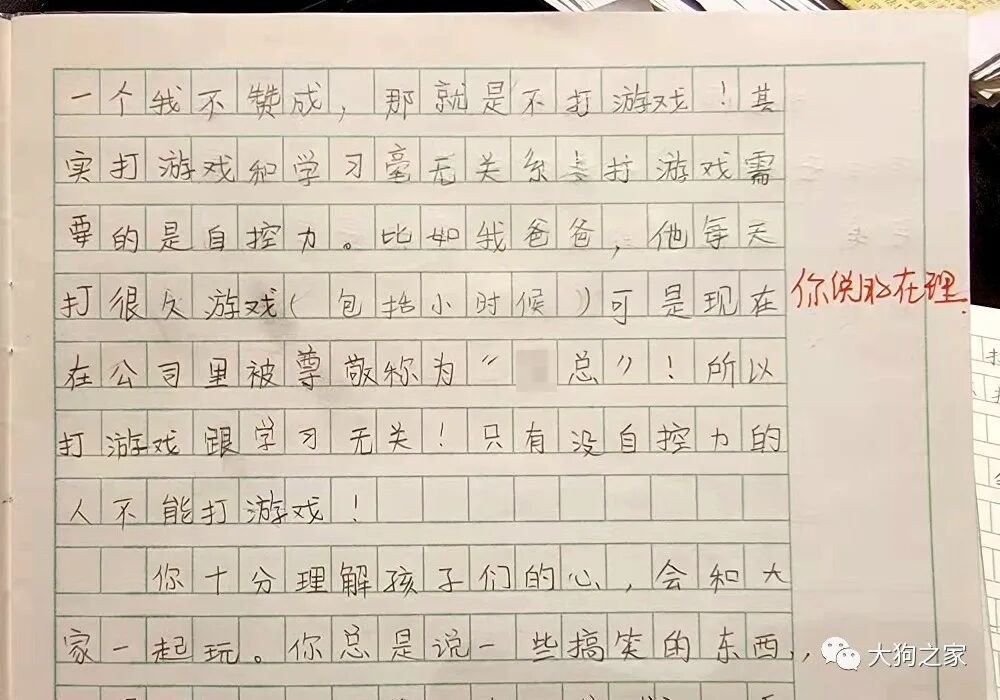 一个我不赞成，那就是不打游戏！其
实打游戏和学习毫无关系，打游戏需
要的是自控力。比如我爸爸，他每天
打很久游戏（包括小时候）可是现在
你说的在理.
在公司里被尊敬称为“总”！所以
打游戏跟学习无关！只有没自控力的
人不能打游戏！
你十分理解孩子们的心，会和大
家一起玩。你总是说一些搞笑的东西，
大狗之家